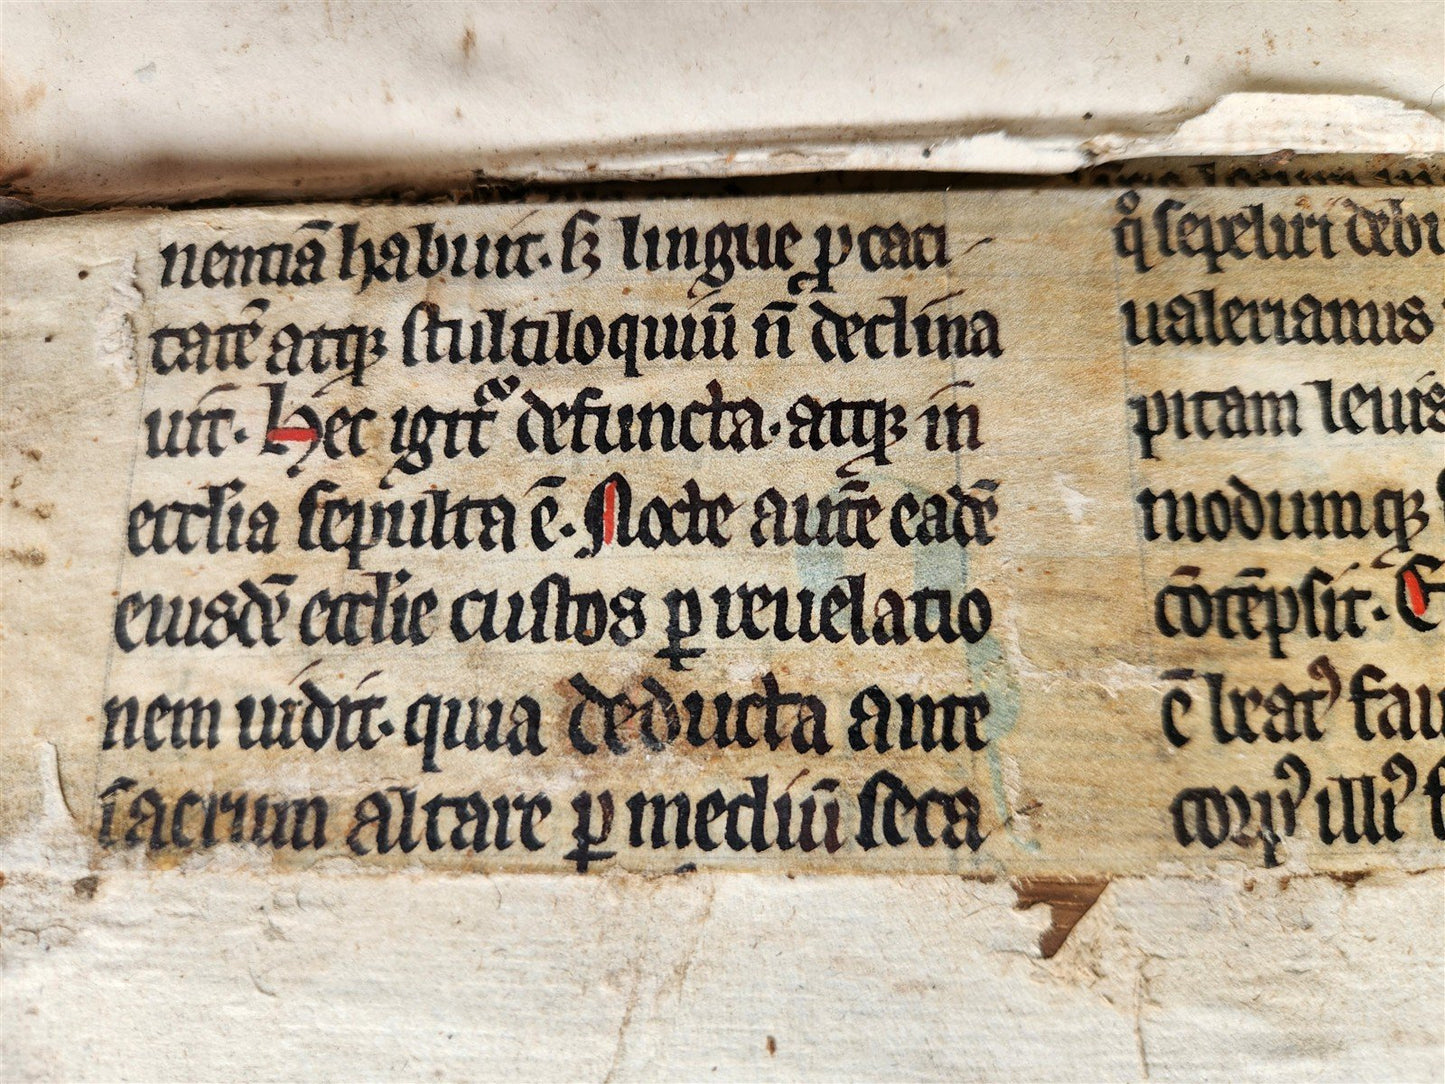 nentiā habuit. sꝫ lingue ꝓcaci
tatē atqꝫ stultiloquiū n̄ declina
uit. Hec igit᷑ defuncta. atqꝫ in
eccl̄ia sepulta ē. Nocte autē eadē
eiusdē eccl̄ie custos ꝑ reuelatio
nem uidit. quia deducta ante
sacrum altare ꝑ mediū seca
qͦ sepeliri debu
ualerianus
pitam leuis
modumqꝫ
cōtēpsit.
ē beatꝰ fau
corpꝰ illiꝰ